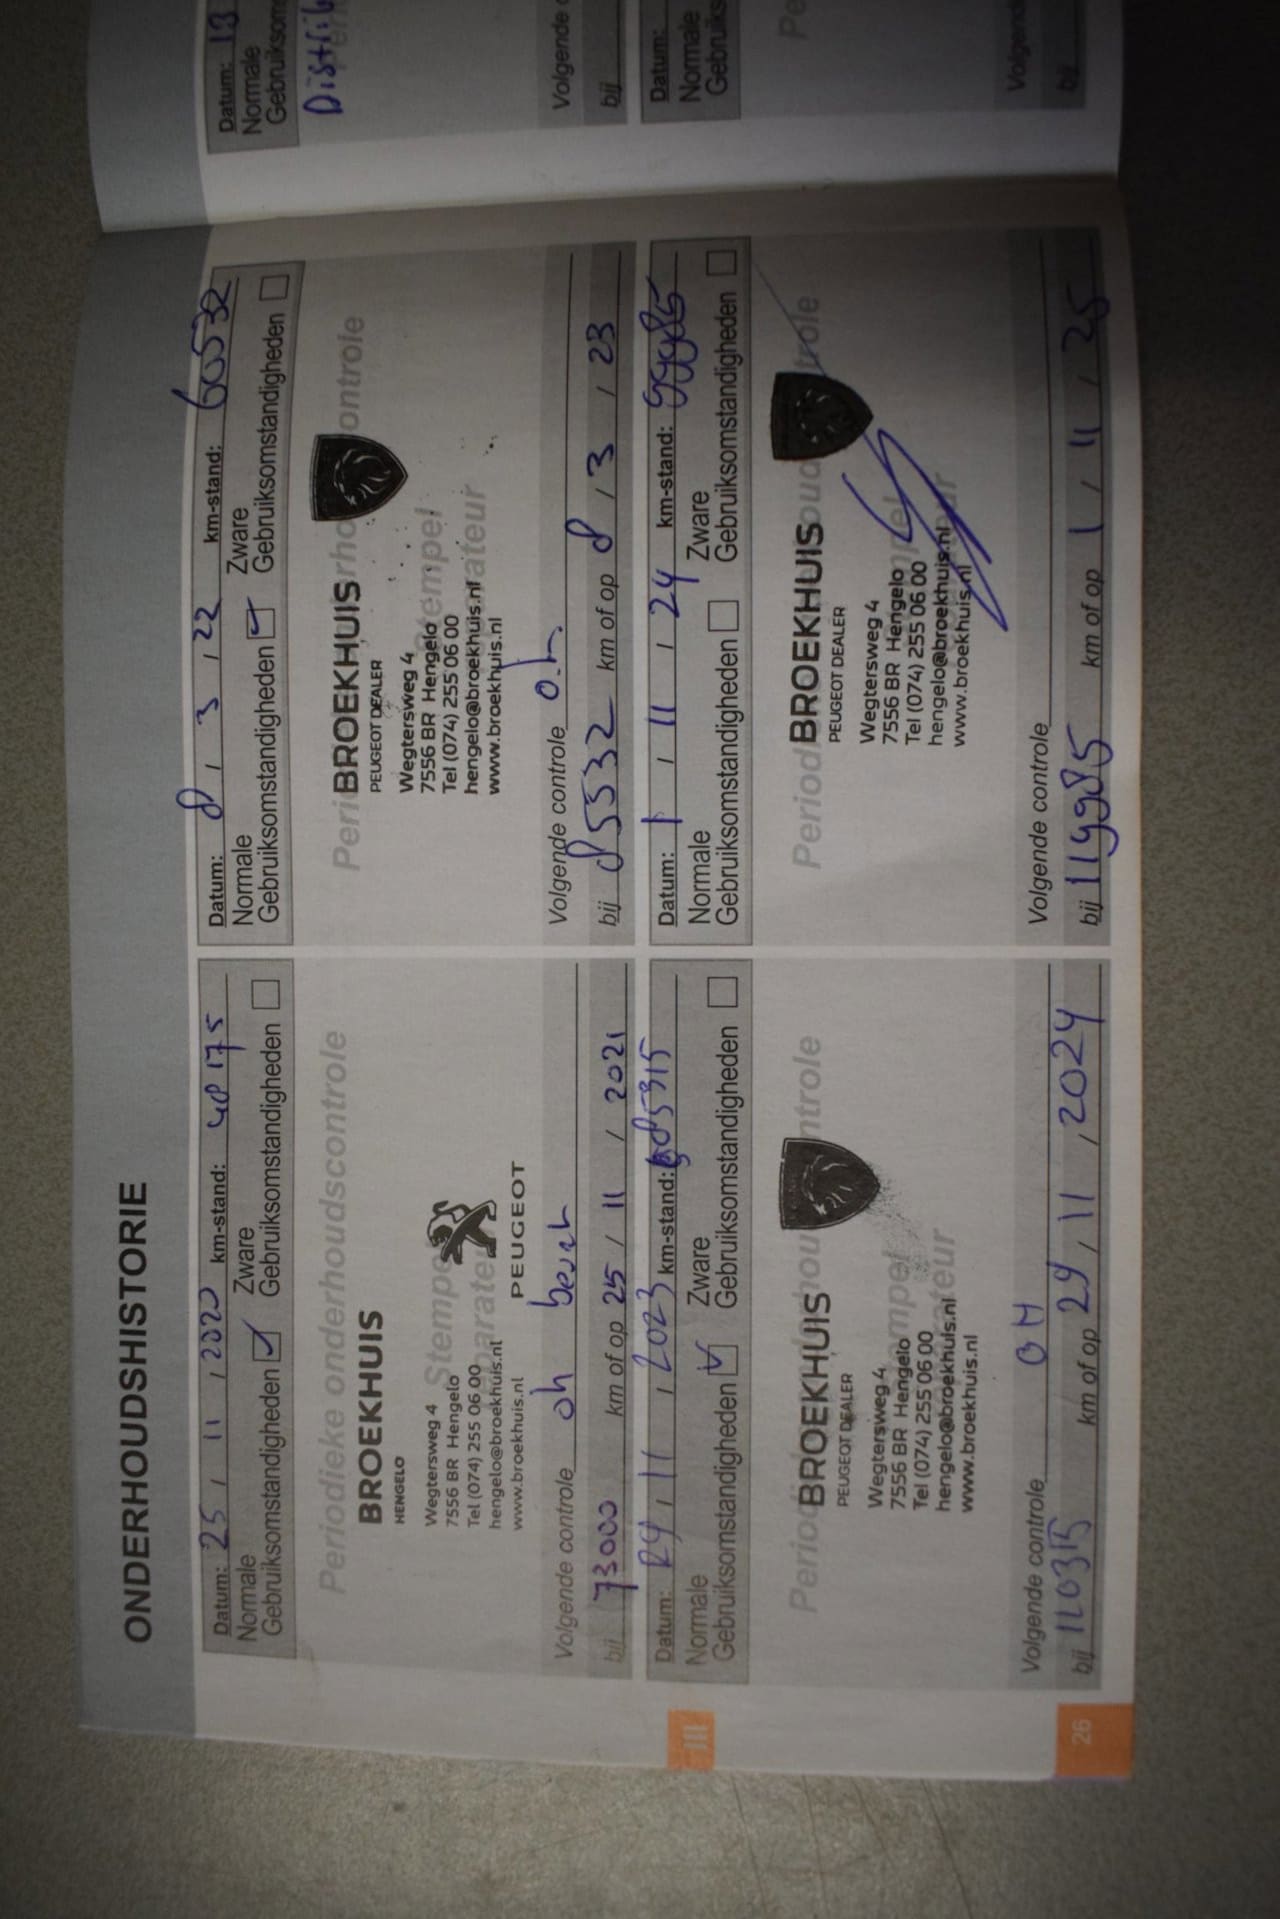 ONDERHOUDSHISTORIE
Datum: 25 / 11 / 2020 km-stand: 48175
Normale Gebruiksomstandigheden Zware Gebruiksomstandigheden
Periodieke onderhoudscontrole
BROEKHUIS
HENGELO
Wegtersweg 4
7556 BR Hengelo
Tel (074) 255 06 00
hengelo@broekhuis.nl
www.broekhuis.nl
PEUGEOT
Volgende controle oh
bij 73000 km of op 25 / 11 / 2021
Datum: 8 / 3 / 22 km-stand: 60532
Normale Gebruiksomstandigheden Zware Gebruiksomstandigheden
BROEKHUIS
PEUGEOT DEALER
Wegtersweg 4
7556 BR Hengelo
Tel (074) 255 06 00
hengelo@broekhuis.nl
www.broekhuis.nl
Volgende controle o.h.
bij 85532 km of op 8 / 3 / 23
Datum: 29 / 11 / 2023 km-stand: 85315
Normale Gebruiksomstandigheden Zware Gebruiksomstandigheden
BROEKHUIS
PEUGEOT DEALER
Wegtersweg 4
7556 BR Hengelo
Tel (074) 255 06 00
hengelo@broekhuis.nl
www.broekhuis.nl
Volgende controle OH
bij 110315 km of op 29 / 11 / 2024
Datum: 1 / 11 / 24 km-stand: 99985
Normale Gebruiksomstandigheden Zware Gebruiksomstandigheden
BROEKHUIS
PEUGEOT DEALER
Wegtersweg 4
7556 BR Hengelo
Tel (074) 255 06 00
hengelo@broekhuis.nl
www.broekhuis.nl
Volgende controle
bij 119985 km of op 1 / 11 / 25
III
26
Datum: 13
Normale
Volgende
bij
Datum:
Normale
Volgende
bij